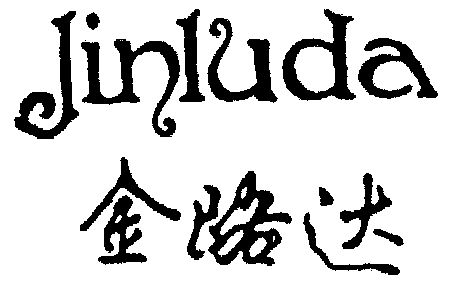 Jinluda
金路达